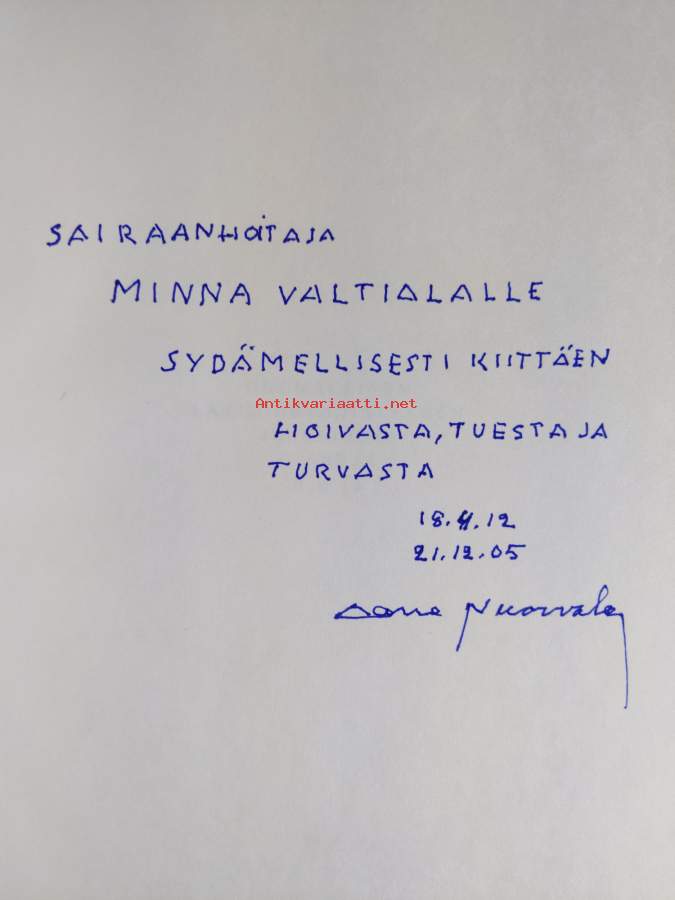 SAIRAANHOITAJA
MINNA VALTIALALLE
SYDÄMELLISESTI KIITTÄEN
Antikvariaatti.net
HOIVASTA, TUESTA JA
TURVASTA
18.4.12
21.12.05
Aarne Nuorvala